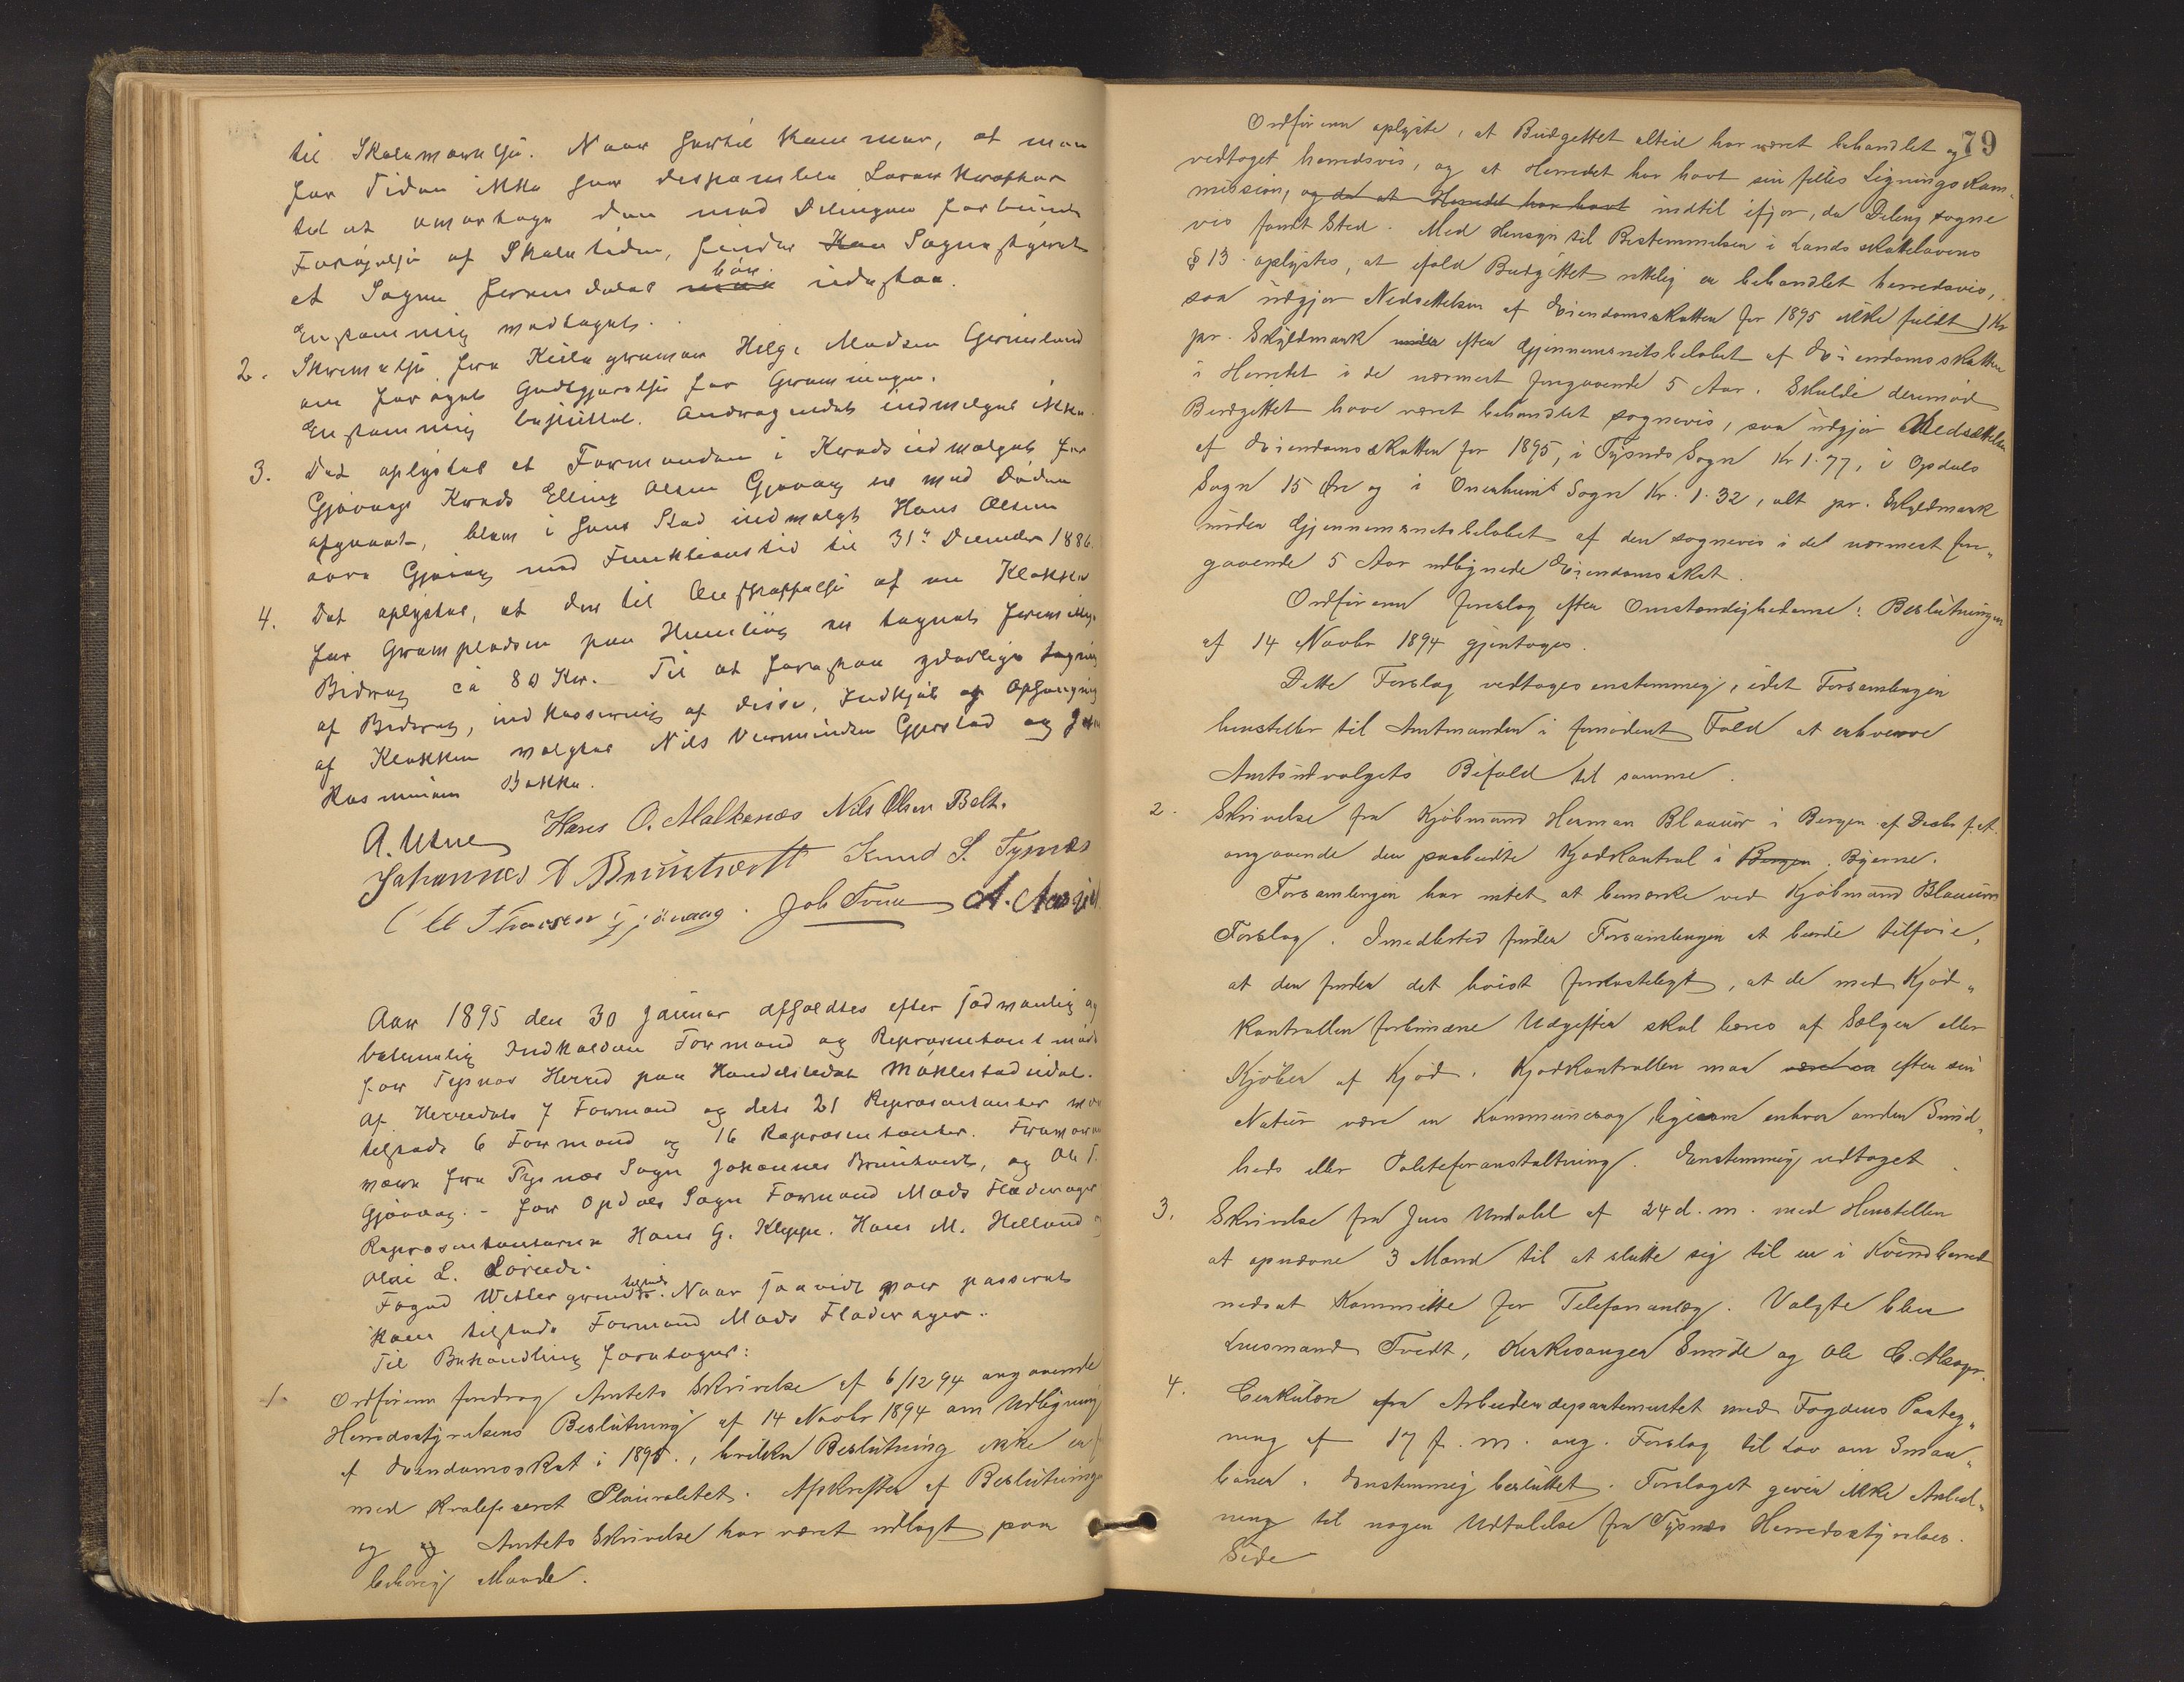 til Skolemænsje. Naar hertil kommer, at man
for Tiden ikke har disponible Lærerkræfter
til at omortage den med Delingen forbundne
Forøgelse af Skoletiden, finder Sognestyret
at Sagen fremdeles bør udestaa.
Enstemmig vedtaget.
2. Skrivelse fra Helge Madsen Grimsland
om forøget Godtgjørelse for Gravningen.
Enstemmig besluttet. Andragendet indvilges ikke.
3. Det oplystes at Formanden i Kreds udvalget for
Gjøvaags Kreds Elling Olsen Gjøvaag er ved Døden
afgaaet, blev i hans Sted indvalgt Hans Olsen
øvre Gjøvaag med Funktionstid til 31te December 1886.
4. Det oplystes, at der til Anskaffelse af en Klokke
for Gravpladsen paa Humlevig er tegnet frivillige
Bidrag ca 80 Kr. Til at forestaa yderlige tegning
af Bidrag, indkassering af disse, Indkjøb og Ophængning
af Klokken valgtes Nils Vermundsen Gjerstad og
Rasmussen Bakke.
A. Utne Hans O. Malkenæs Nils Olsen Belt.
Johannes A Bruntveit Knud S. Tysnæs
Ole Thorsen Gjøvaag. Job Tveit A.
Aar 1895 den 30 Januar afholdtes efter sædvanlig og
betimelig Indkaldem Formand og Repræsentantmøde
for Tysnes Herred paa Handelsstedet Møklestadeidet.
Af Herredets 7 Formænd og dets 21 Repræsentanter var
tilstede 6 Formænd og 16 Repræsentanter. Fraværende
vare fra Tysnæs Sogn Johannes Bruntveit, og Ole T.
Gjøvaag. - for Opdals Sogn Formand Mads Fladerager
Repræsentanterne Hans G. Kleppe. Hans M. Helland
Olai L. Lørede.
Foged Wettergreen tilstede. Naar saavidt var passeret
kom tilstede Formand Mads Fladerager.
Til Behandling foretoges:
1. Ordføreren foredrog Amtets Skrivelse af 6/12 94 angaaende
Herredsstyrelsens Beslutning af 14 Novbr 1894 om Udligning
af Eiendomsskat i 1895., hvilken Beslutning ikke er
med kvalificeret Pluralitet. Afskrifter af Beslutningen
og og Amtets Skrivelse har været udlagt paa
behørig Maade.
79
Ordføreren oplyste, at Budgettet altid har været behandlet og
vedtaget herredsvis, og at Herredet har havt sin fælles Ligningskom-
mission, og det at Herredet har havt indtil ifjor, da Deling sogne
vis fandt Sted. Med Hensyn til Bestemmelsen i Landsskattelovens
§ 13. oplystes, at ifald Budgettet rettelig er behandlet herredsvis,
saa udgjør Nedsættelsen af Eiendomsskatten for 1895 ikke fuldt 1 Kr
pr. Skyldmark under efter Gjennemsnitsbeløbet af Eiendomsskatten
i Herredet i de nærmest foregaaende 5 Aar. Skulde derimod
Budgettet have været behandlet sognevis, saa udgjør Nedsættelsen
af Eiendomsskatten for 1895, i Tysnæs Sogn Kr 1.77, i Opdals
Sogn 15 Øre og i Onerheims Sogn Kr. 1.32, alt pr. Skyldmark
under Gjennemsnitsbeløbet af den sognevis i det nærmest fore-
gaaende 5 Aar udlignede Eiendomsskat.
Ordføreren foreslog efter Omstændighederne: Beslutningen
af 14 Novbr 1894 gjentages.
Dette Forslag vedtages enstemmig, idet Forsamlingen
henstiller til Amtmanden i fornødent Fald at erhverve
Amtsudvalgets Bifald til samme.
2. Skrivelse fra Kjøbmand Herman Blaauw i Bergen af Decbr f. A.
angaaende den paabudte Kjødkontrol i Bergen Byerne.
Forsamlingen har intet at bemærke ved Kjøbmand Blaauws
Forslag. Imidlertid finder Forsamlingen at burde tilføie,
at den finder det høist forkasteligt, at de med Kjød-
kontrollen forbundne Udgifter skal bæres af Sælger eller
Kjøber af Kjød. Kjødkontrollen maa efter sin
Natur være en Kommunesag ligesom enhver anden Sund-
heds eller Politiforanstaltning. Eenstemmig vedtaget.
3. Skrivelse fra Jens Undahl af 24 d. m. med Henstillen
at opnævne 3 Mænd til at slutte sig til en i Kvindherred
nedsat Kommitte for Telefonanlæg. Valgte blev
Lensmand Tvedt, Kirkesanger Smørde og Ole C. Alsager.
4. Cirkulære fra Arbeiderdepartementet med Fogdens Paateg-
ning af 17 f. m. ang. Forslag til Lov om Smaa-
baner. Enstemmig besluttet. Forslaget giver ikke Anled-
ning til nogen Udtalelse fra Tysnæs Herredsstyrelses.
Side